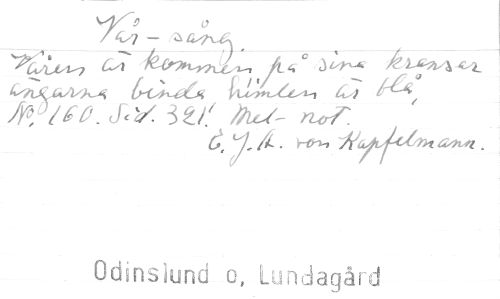 Vår-sång.
Våren är kommen, på sina kransar
ängarna binda himlen är blå,
No. 160. Sid. 321. Mel-not.
E. J. A. von Kapfelmann.
Odinslund o, Lundagård